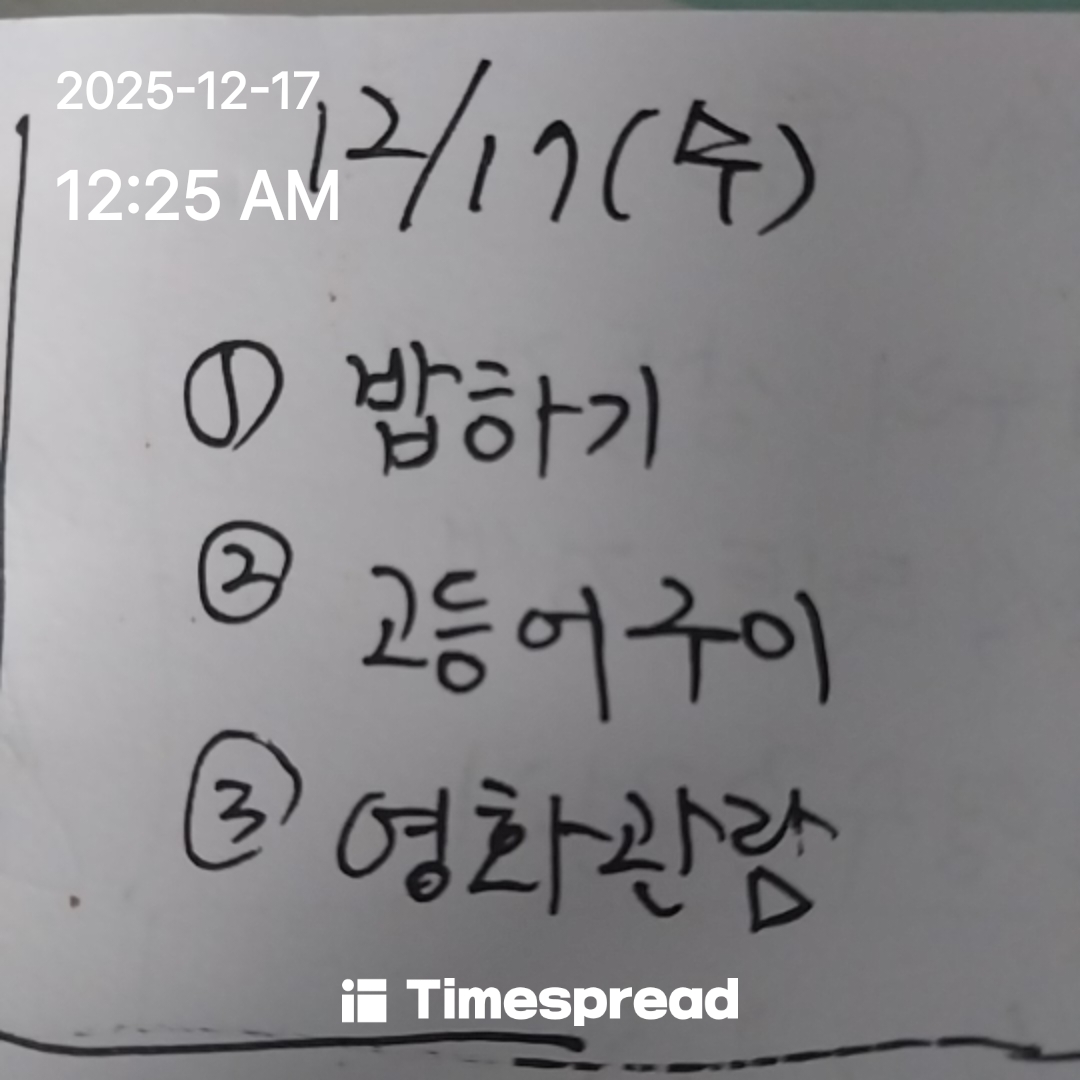 2025-12-17
12:25 AM
12/17(수)
① 밥하기
② 고등어구이
③ 영화관람
Timespread